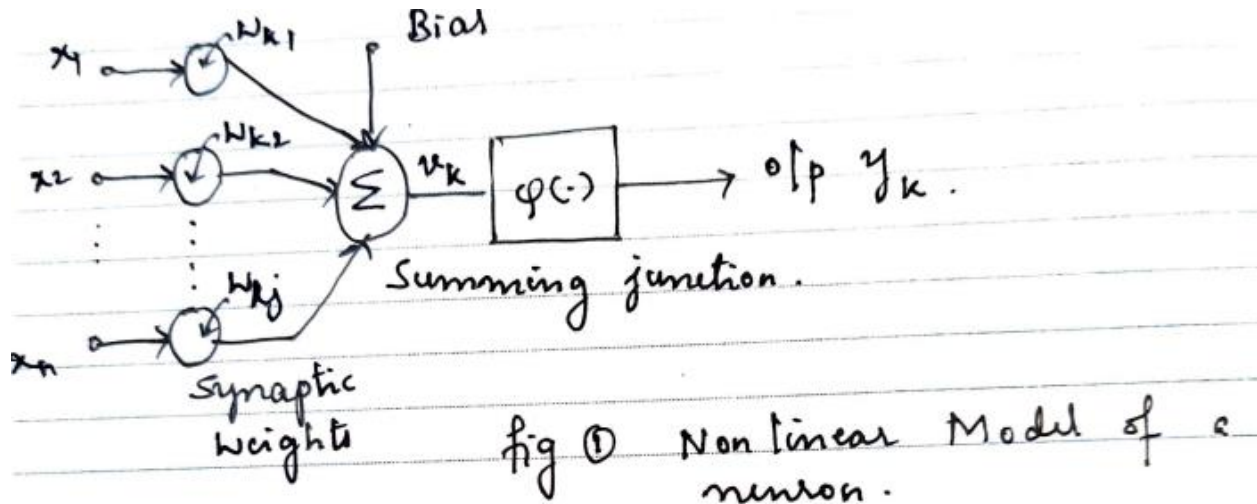 Bias
x1 wk1
x2 wk2
Σ vk φ(·) o/p yk.
Summing junction.
xn wkj
Synaptic
weights
fig ① Non linear Model of a
neuron.